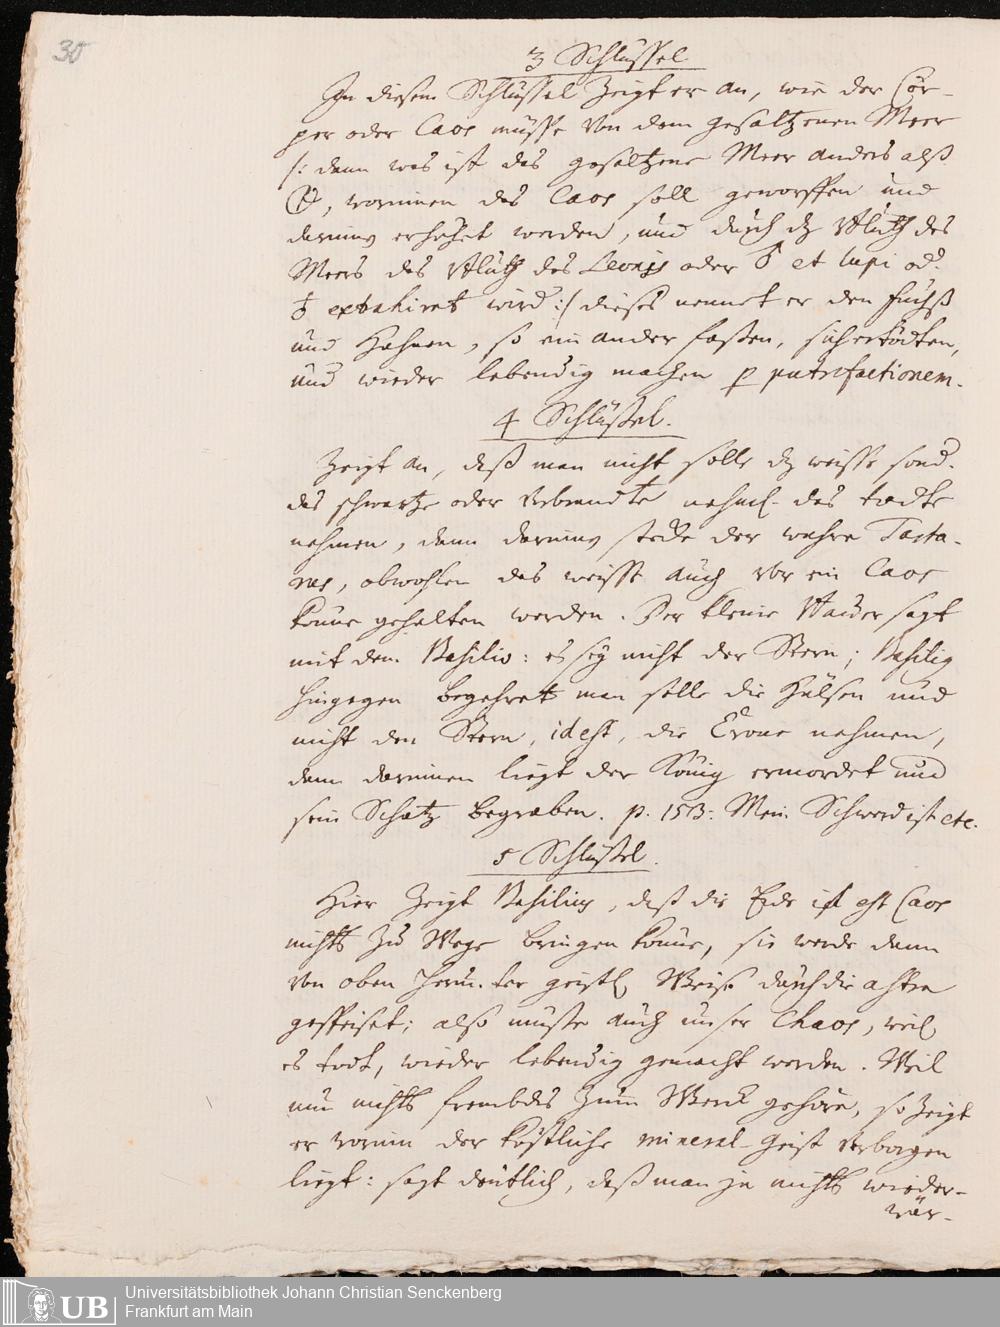 30
3 Schlüssel
In diesem Schlüssel Zeigt er an, wie der Cör-
per oder Caos müsse von dem gesaltzenen Meer
/: dann was ist das gesaltzene Meer anders alß
, worinnen das Caos soll geworffen und
erhöhet werden, und durch dz Bluth des
Meers das Bluth des Leonis oder ♂ et lupi od.
♁ extrahiret wird :/ dieses nennet er den Fuchß
und Hahnen, so ein ander faßen, sich ertödten,
und wieder lebendig machen p putrefactionem.
4 Schlüßel.
Zeigt an, daß man nicht solle dz weisse sond.
das schwartze oder verbrandte nehml. das todte
nehmen, dann darinn stecke der wahre Tarta-
rus, obwohlen das weisse auch vor ein Caos
könne gehalten werden. Der kleine Bauer sagt
mit dem Basilio: es sey nicht der Stern; Basilig
hingegen begehret man solle die Hülsen und
nicht den Stern, id est, die Crone nehmen,
dann darinnen liegt der König ermordet und
sein Schatz begraben. p. 153: Mein Schwerd ist etc.
5 Schlüßel.
Hier Zeigt Basilius, daß die Erde ist est Caos
nichts Zu Wege bringen könne, sie werde dann
von oben herunter geistl Weise durch die astra
gespeiset; also muste auch unser Chaos, weil
es todt, wieder lebendig gemacht werden. Weil
nun nichts frembdes Zum Werck gehöre, so Zeigt
er worinn der köstliche mineral-Geist verborgen
liegt: sagt deutlich, daß man ja nichts wieder-
wär-
UB
Universitätsbibliothek Johann Christian Senckenberg
Frankfurt am Main